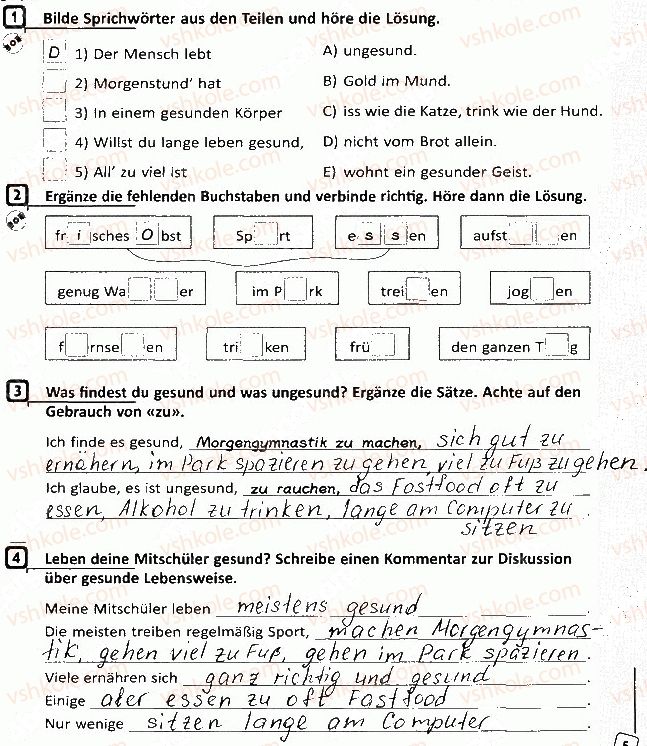 1 Bilde Sprichwörter aus den Teilen und höre die Lösung.
D 1) Der Mensch lebt A) ungesund.
2) Morgenstund' hat B) Gold im Mund.
3) In einem gesunden Körper C) iss wie die Katze, trink wie der Hund.
4) Willst du lange leben gesund, D) nicht vom Brot allein.
5) All' zu viel ist E) wohnt ein gesunder Geist.
2 Ergänze die fehlenden Buchstaben und verbinde richtig. Höre dann die Lösung.
fr i sches O bst Sp rt e s s en aufst en
genug Wa er im P rk trei en jog en
f rnse en tri ken frü den ganzen T g
3 Was findest du gesund und was ungesund? Ergänze die Sätze. Achte auf den
Gebrauch von «zu».
Ich finde es gesund, Morgengymnastik zu machen, sich gut zu
ernähern, im Park spazieren zu gehen, viel zu Fuß zu gehen.
Ich glaube, es ist ungesund, zu rauchen, das Fostfood oft zu
essen, Alkohol zu trinken, lange am Computer zu
sitzen.
4 Leben deine Mitschüler gesund? Schreibe einen Kommentar zur Diskussion
über gesunde Lebensweise.
Meine Mitschüler leben meistens gesund.
Die meisten treiben regelmäßig Sport, machen Morgengymnas-
tik, gehen viel zu Fuß, gehen im Park späzieren.
Viele ernähren sich ganz richtig und gesund.
Einige aber essen zu oft Fastfood.
Nur wenige sitzen lange am Computer.
5